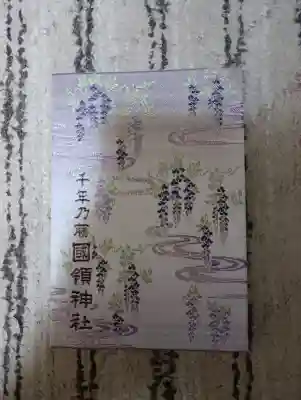 千年乃藤 國領神社